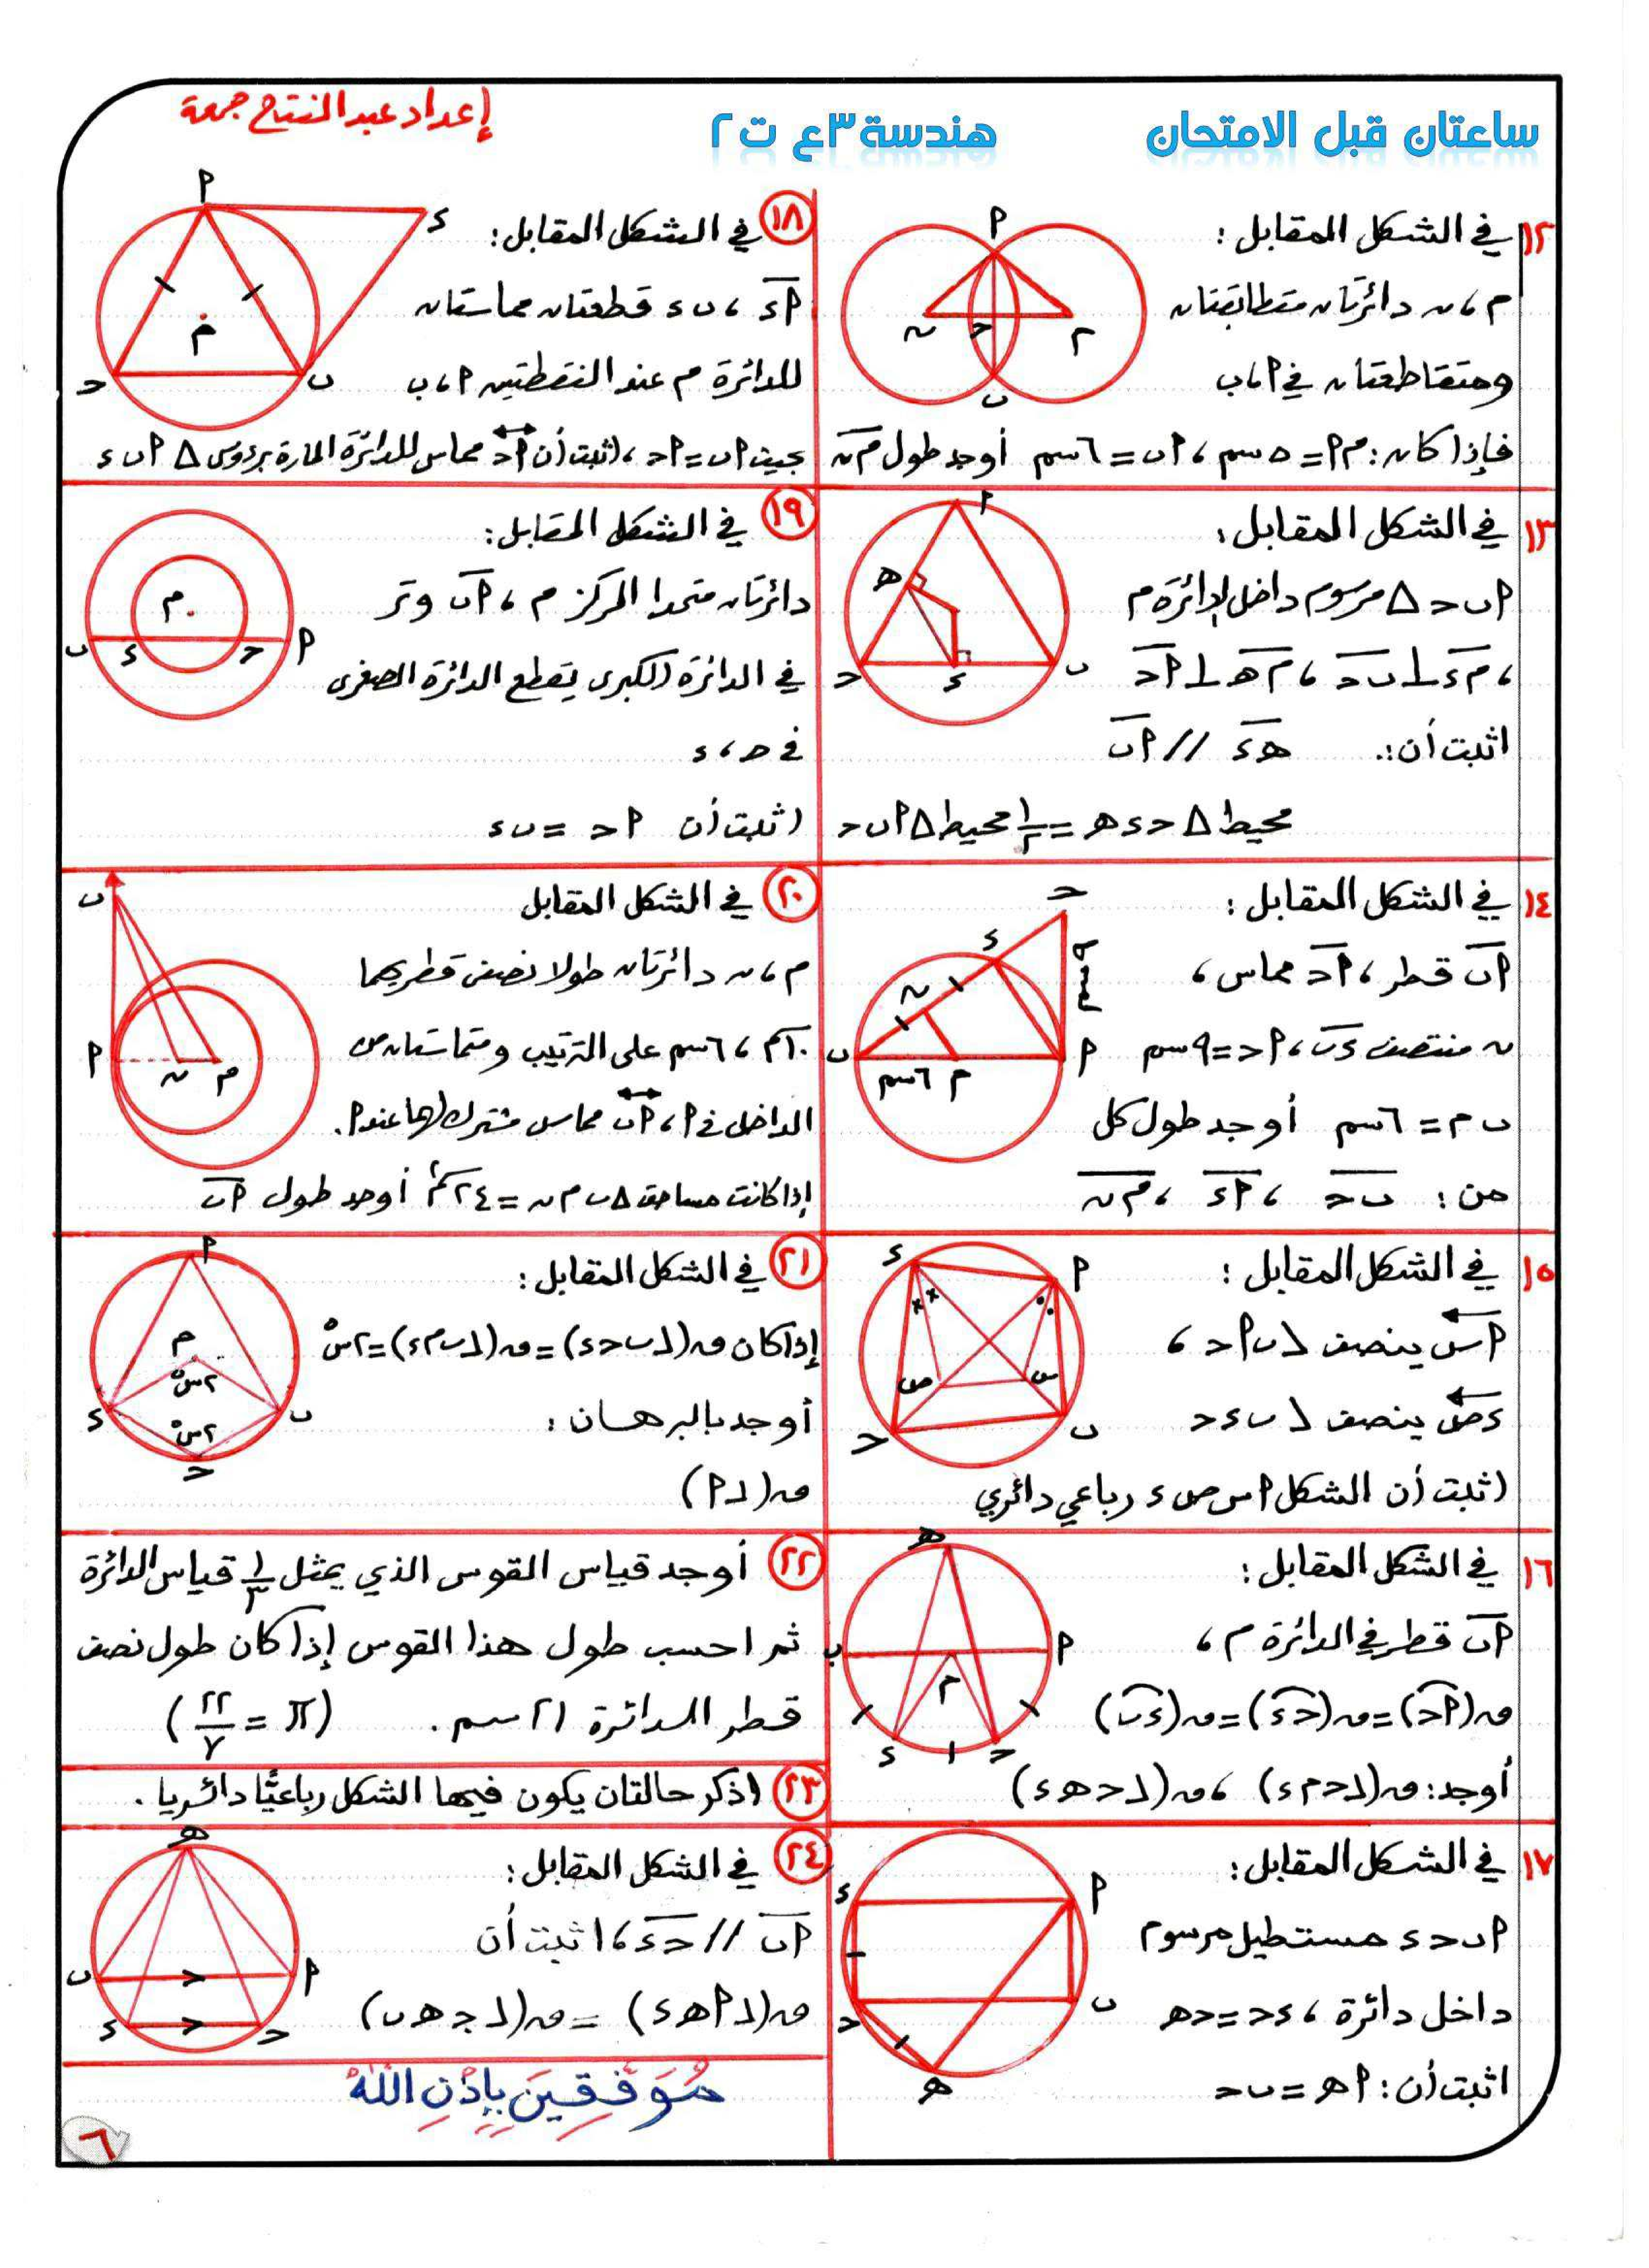 ساعتان قبل الامتحان
هندسة ٣ع ت٢
إعداد عبد الفتاح جمعة
١٢ في الشكل المقابل :
م ، ن دائرتان متطابقتان
ومتقاطعتان في P ، ب
فإذا كان : م P = ٥ سم ، P ب = ٦ سم أوجد طول م ن
P
ن
ح
م
ب
١٣ في الشكل المقابل :
P ب ح Δ مرسوم داخل الدائرة م
، م ء ⊥ ب ح ، م ه ⊥ P ح
اثبت أن : ه ء // P ب
محيط Δ ح ء ه = ١/٢ محيط Δ P ب ح
P
ه
ح
ء
ب
١٤ في الشكل المقابل :
P ب قطر ، P ح مماس ،
ن منتصف ء ب ، P ح = ٩ سم
ب م = ٦ سم أوجد طول كل
من : ب ح ، P ء ، م ن
ح
ء
٩ سم
ن
ب
٦ سم
م
P
١٥ في الشكل المقابل :
P س ينصف ∠ ب P ح ،
ء ص ينصف ∠ ب ء ح
اثبت أن الشكل P س ص ء رباعي دائري
ء
P
ص
س
ح
ب
١٦ في الشكل المقابل :
P ب قطر في الدائرة م ،
ق (P ح) = ق (ح ء) = ق (ء ب)
أوجد : ق (∠ ح م ء) ، ق (∠ ح ه ء)
ه
ب
P
م
ء
ح
١٧ في الشكل المقابل :
P ب ح ء مستطيل مرسوم
داخل دائرة ، ء ح = ح ه
اثبت أن : P ه = ب ح
ء
P
ح
ب
ه
١٨ في الشكل المقابل :
P ء ، ب ء قطعتان مماستان
للدائرة م عند النقطتين P ، ب
بحيث P ب = P ح ، اثبت أن P ح مماس للدائرة المارة برءوس Δ P ب ء
P
ء
م
ح
ب
١٩ في الشكل المقابل :
دائرتان متحدا المركز م ، P ب وتر
في الدائرة الكبرى يقطع الدائرة الصغرى
في ح ، ء
اثبت أن P ح = ب ء
م
ب
ء
ح
P
٢٠ في الشكل المقابل
م ، ن دائرتان طولا نصفى قطريهما
١٠ سم ، ٦ سم على الترتيب ومتماستان من
الداخل في P ، P ب مماس مشترك لهما عند P .
إذا كانت مساحة Δ ب م ن = ٢٤ سم٢ أوجد طول P ب
ب
P
ن
م
٢١ في الشكل المقابل :
إذا كان ق (∠ ب ح ء) = ق (∠ ب م ء) = ٢س°
أوجد بالبرهان :
ق (∠ P)
P
م
٢س°
ء
ب
٢س°
ح
٢٢ أوجد قياس القوس الذي يمثل ١/٣ قياس الدائرة
ثم احسب طول هذا القوس إذا كان طول نصف
قطر الدائرة ٢١ سم . (π = ٢٢/٧)
٢٣ اذكر حالتان يكون فيها الشكل رباعيًّا دائريا .
٢٤ في الشكل المقابل :
P ب // ح ء ، اثبت أن
ق (∠ P ه ء) = ق (∠ ح ه ب)
ه
ب
P
ء
ح
مُوَفَّقِينَ بِإِذْنِ اللَّهِ
٦